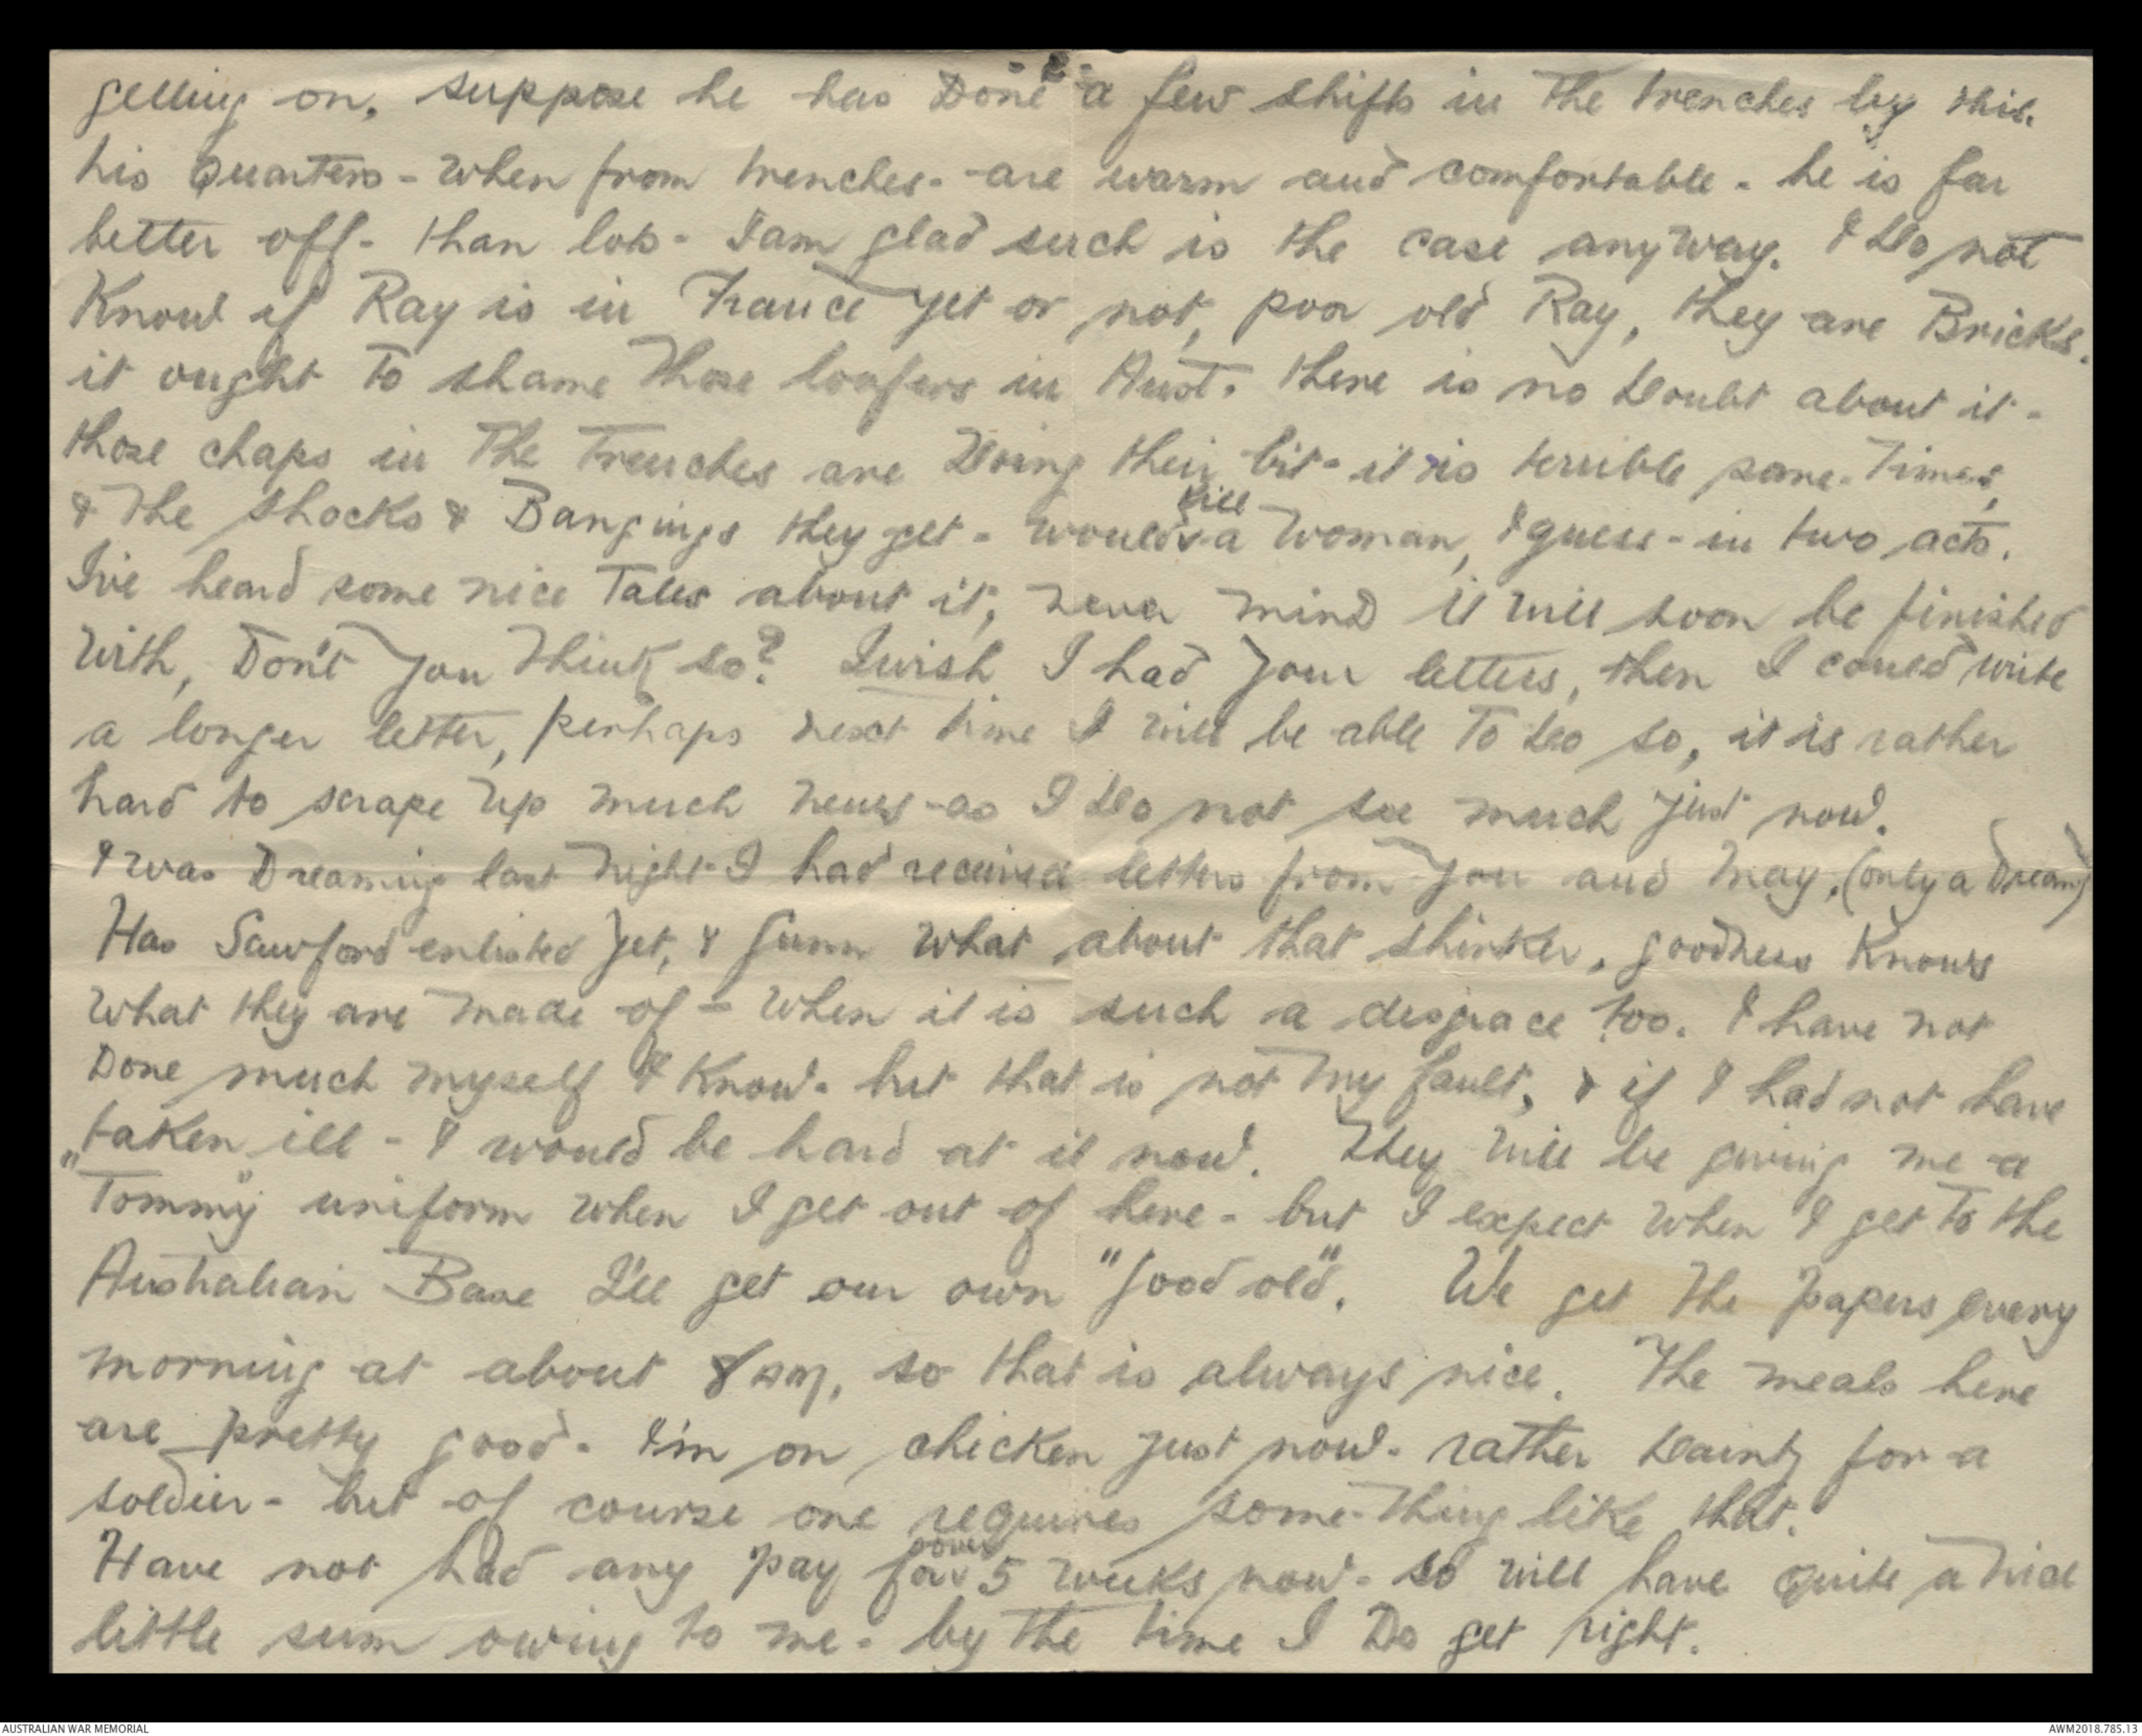 - 2 -
getting on. suppose he has Done a few shifts in the trenches by this.
his Quarters - when from trenches - are warm and comfortable - he is far
better off - than lots - I am glad such is the case anyway. I Do not
Know if Ray is in France yet or not, poor old Ray, they are Bricks.
it ought to shame those loafers in Aust. there is no Doubt about it -
those chaps in The Trenches are Doing their bit - it is terrible some-times,
& The shocks & Bangings they get - would kill a Woman, I guess - in two acts.
I've heard some nice Tales about it, never mind it will soon be finished
with, Don't you Think so? I wish I had your letters, then I could write
a longer letter, perhaps next time I will be able To Do so, it is rather
hard to scrape up much news - as I Do not see much just now.
I was Dreaming last night I had received letters from you and May. (only a Dream)
Has Sawford enlisted yet, & Gunn what about that shirker, goodness Knows
what they are made of - when it is such a disgrace too. I have not
Done much myself I Know - but that is not my fault, & if I had not have
taken ill - I would be hard at it now. They will be giving me a
"Tommy" uniform when I get out of here - but I expect when I get To the
Australian Base I'll get our own "good old". We get The papers every
morning at about 8 am, so that is always nice. The meals here
are pretty good. I'm on chicken just now - rather Dainty for a
soldier - but of course one requires some-thing like that.
Have not had any pay for over 5 weeks now - so will have quite a nice
little sum owing to me - by the time I Do get right.
AUSTRALIAN WAR MEMORIAL
AWM2018.785.13